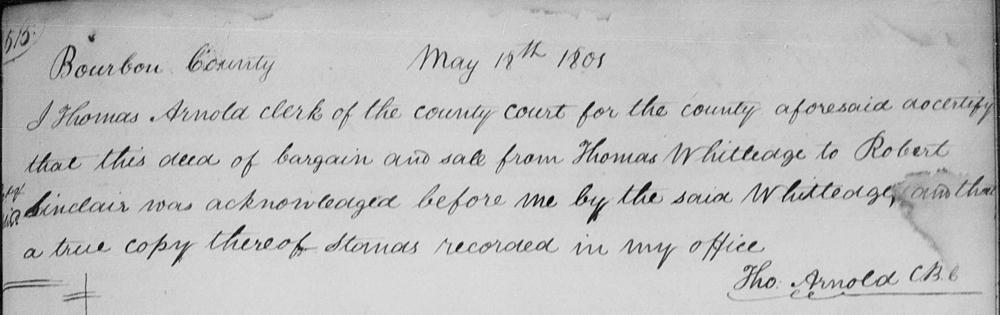 515.
Bourbon County May 18th 1801
I Thomas Arnold clerk of the county court for the county aforesaid do certify
that this deed of bargain and sale from Thomas Whitledge to Robert
Sinclair was acknowledged before me by the said Whitledge, and that
a true copy thereof stands recorded in my office
Tho. Arnold C.B.C